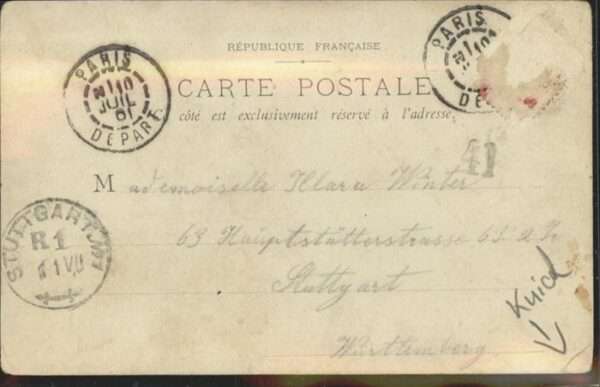 PARIS
10
JUIL
01
DEPART
PARIS
RÉPUBLIQUE FRANÇAISE
CARTE POSTALE
côté est exclusivement réservé à l'adresse.
41
Mademoiselle Klara Winter
63 Hauptstätterstrasse
Stuttgart
Württemberg
STUTTGART
R1
11 VII
Knick